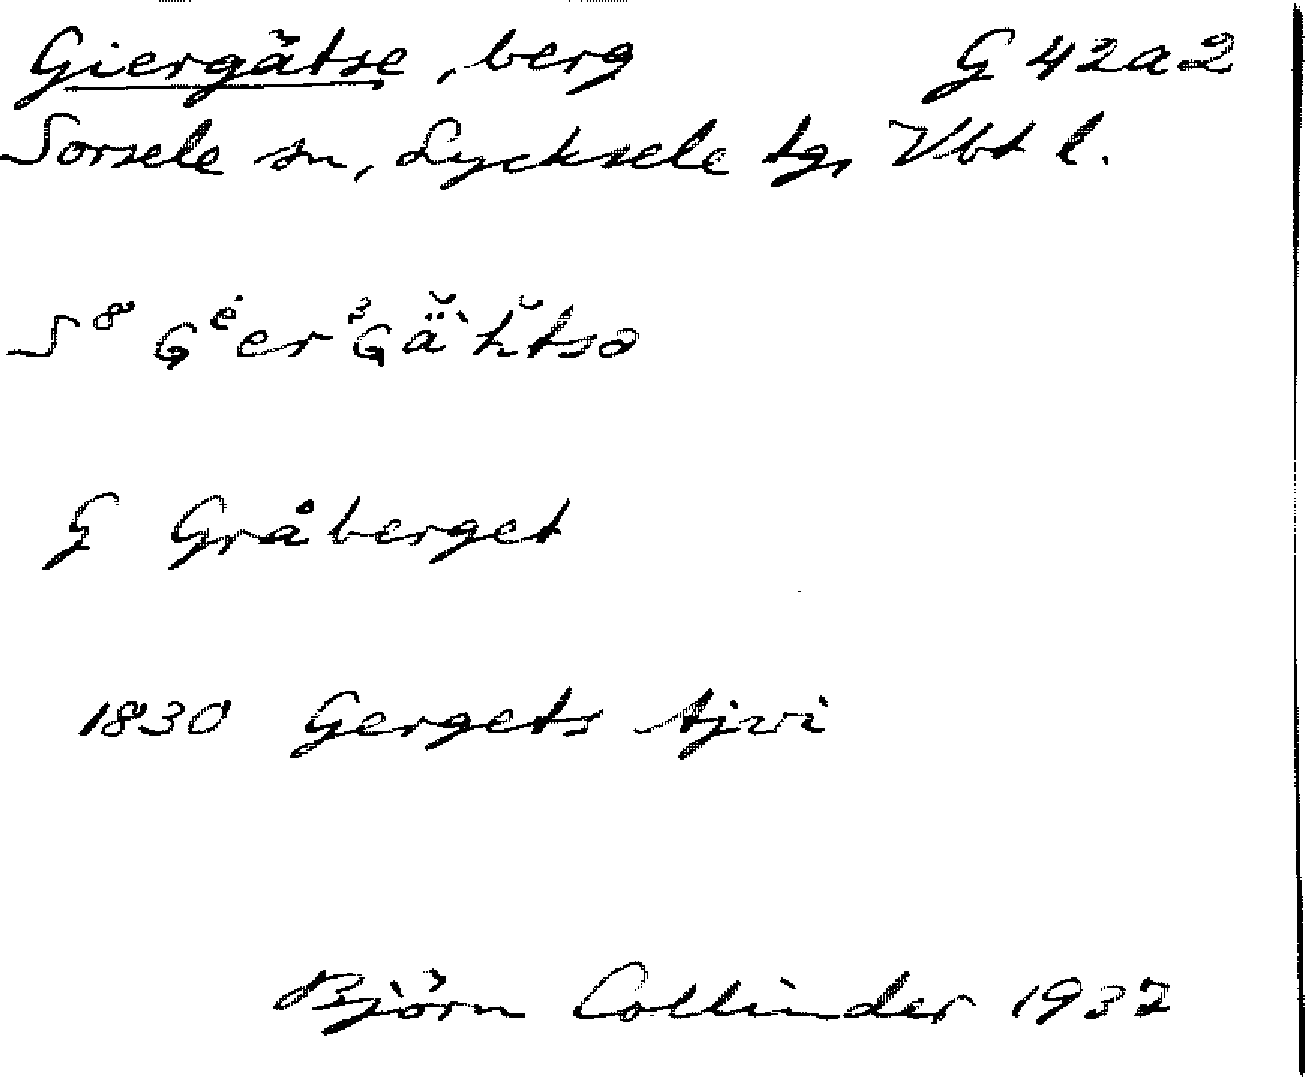 Giergätse, berg G 42a2
Sorsele sn, Lycksele tg, Vbt l.
G Gråberget
1830 Gergets tjwi
Björn Collinder 1932